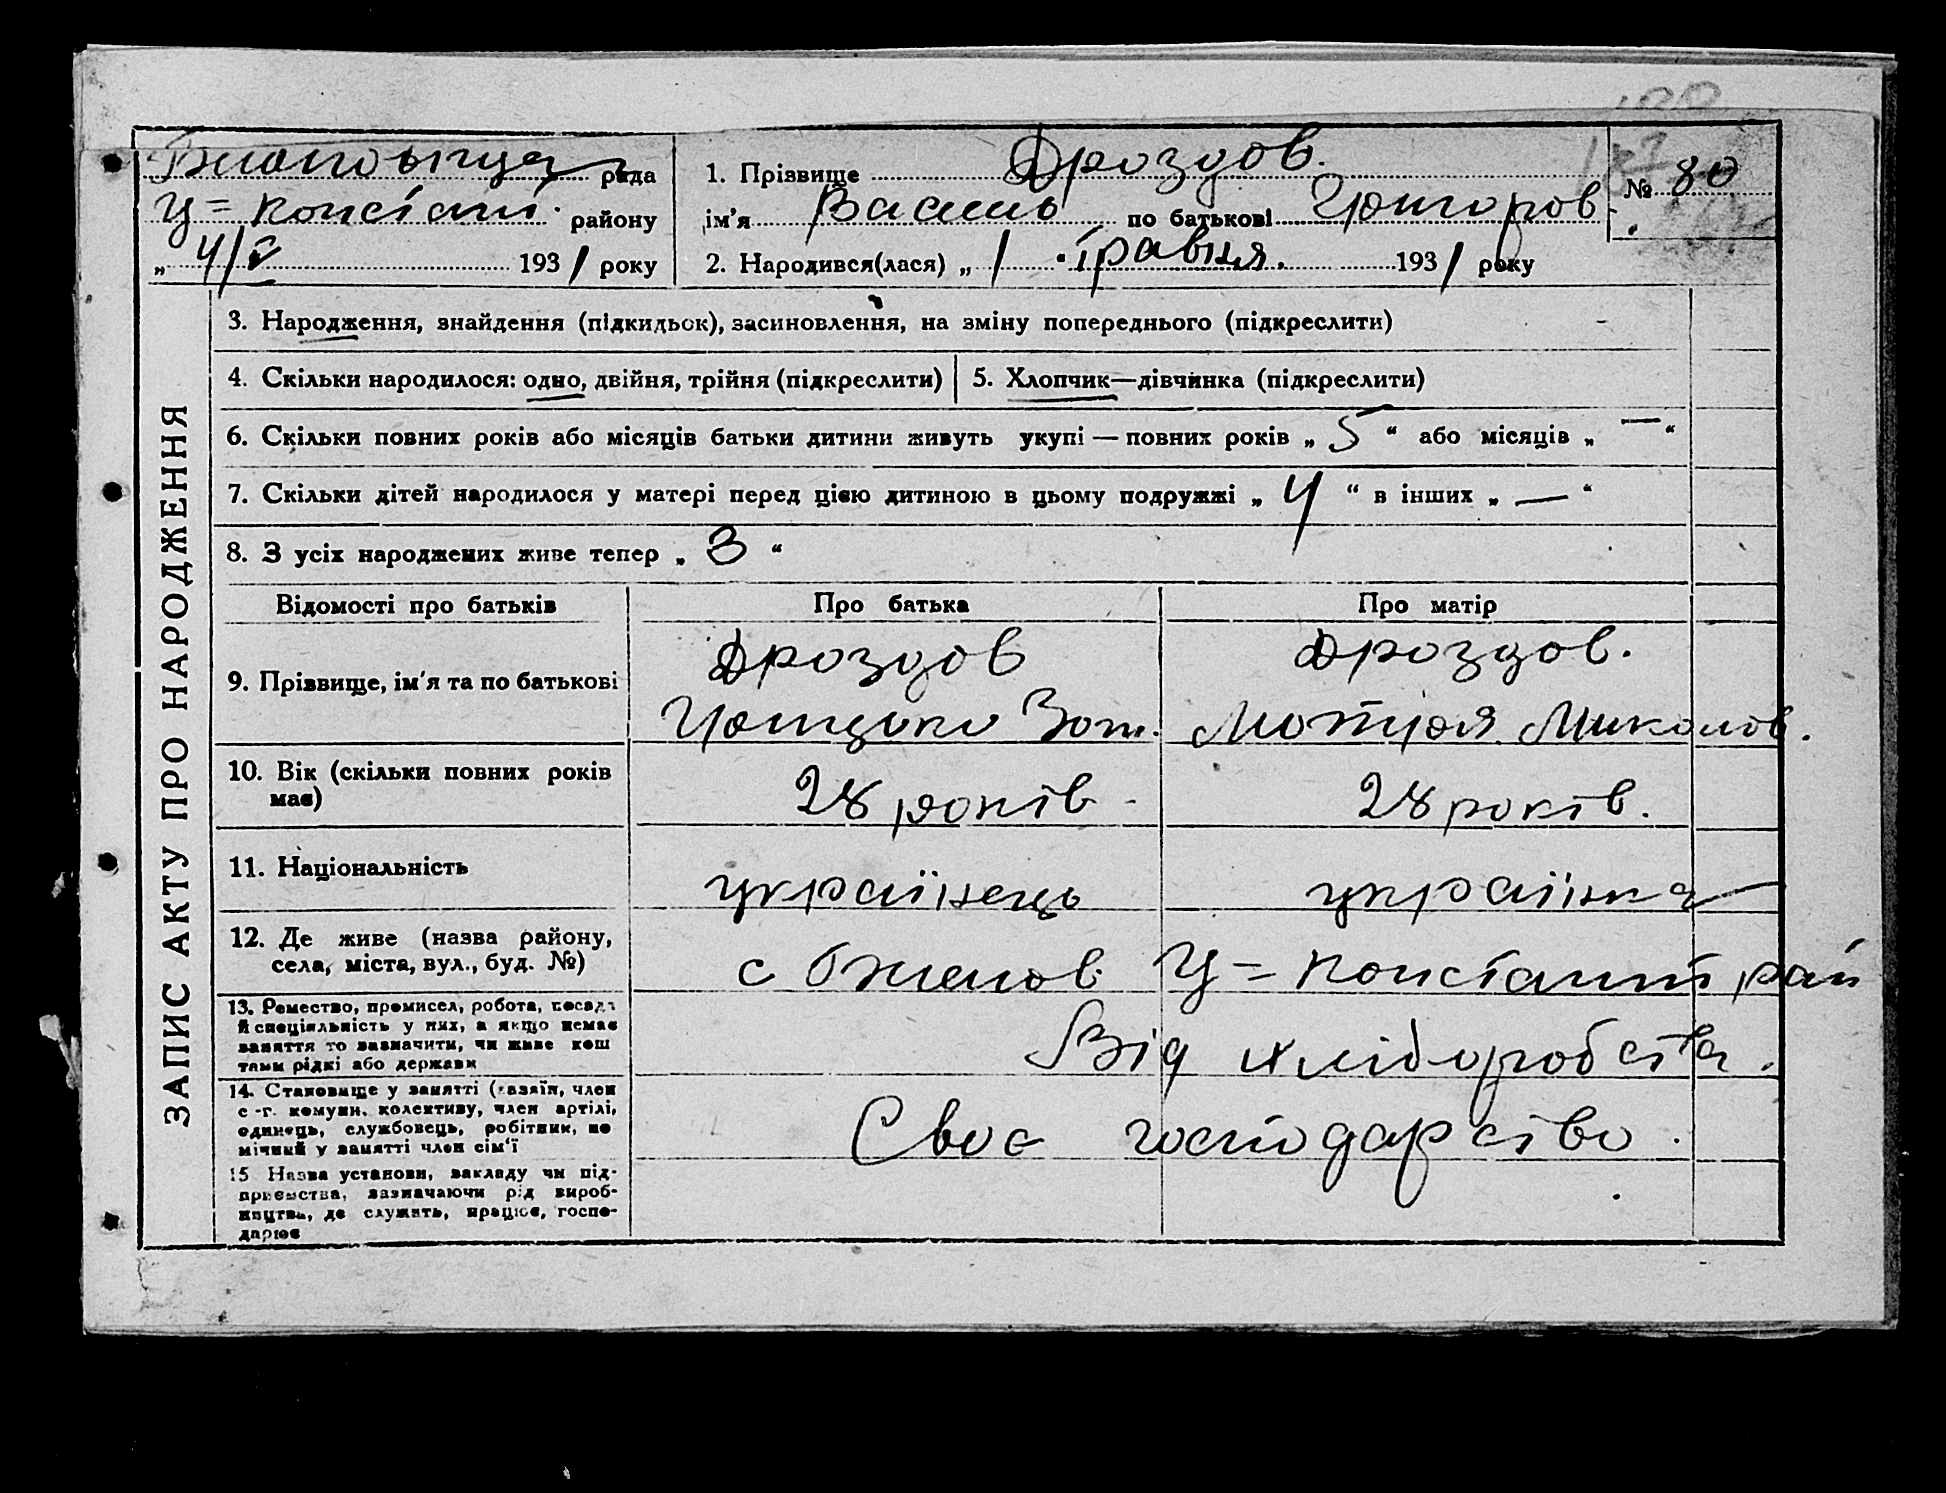 рада
Ц=Констант. району
„ 4/V 1931 року
1. Прізвище Дроздов.
ім'я Василь по батькові Григоров
2. Народився(лася) „ 1 травня. 1931 року
№ 80
ЗАПИС АКТУ ПРО НАРОДЖЕННЯ
3. Народження, знайдення (підкидьок), засиновлення, на зміну попереднього (підкреслити)
4. Скільки народилося: одно, двійня, трійня (підкреслити)
5. Хлопчик—дівчинка (підкреслити)
6. Скільки повних років або місяців батьки дитини живуть укупі — повних років „ 5 “ або місяців „ — “
7. Скільки дітей народилося у матері перед цією дитиною в цьому подружжі „ 4 “ в інших „ — “
8. З усіх народжених живе тепер „ 3 “
Відомості про батьків
Про батька
Про матір
9. Прізвище, ім'я та по батькові
Дроздов
Зот.
Дроздов.
Мотря Миколов.
10. Вік (скільки повних років
має)
28 років
28 років.
11. Національність
українець
українка
12. Де живе (назва району,
села, міста, вул., буд. №)
с Ц=Констант рай
13. Ремество, промисел, робота, посада
й спеціяльність у них, а якщо немає
заняття то зазначити, чи живе кош
тами рідні або держави
Від хліборобства.
14. Становище у занятті (хазяїн, член
с-г. комуни, колективу, член артілі,
одинець, службовець, робітник, по
мічний у занятті член сім'ї
Своє господарство.
15 Назва установи, закладу чи під-
приємства, зазначаючи рід вироб-
ництва, де служить, працює, госпо-
дарює